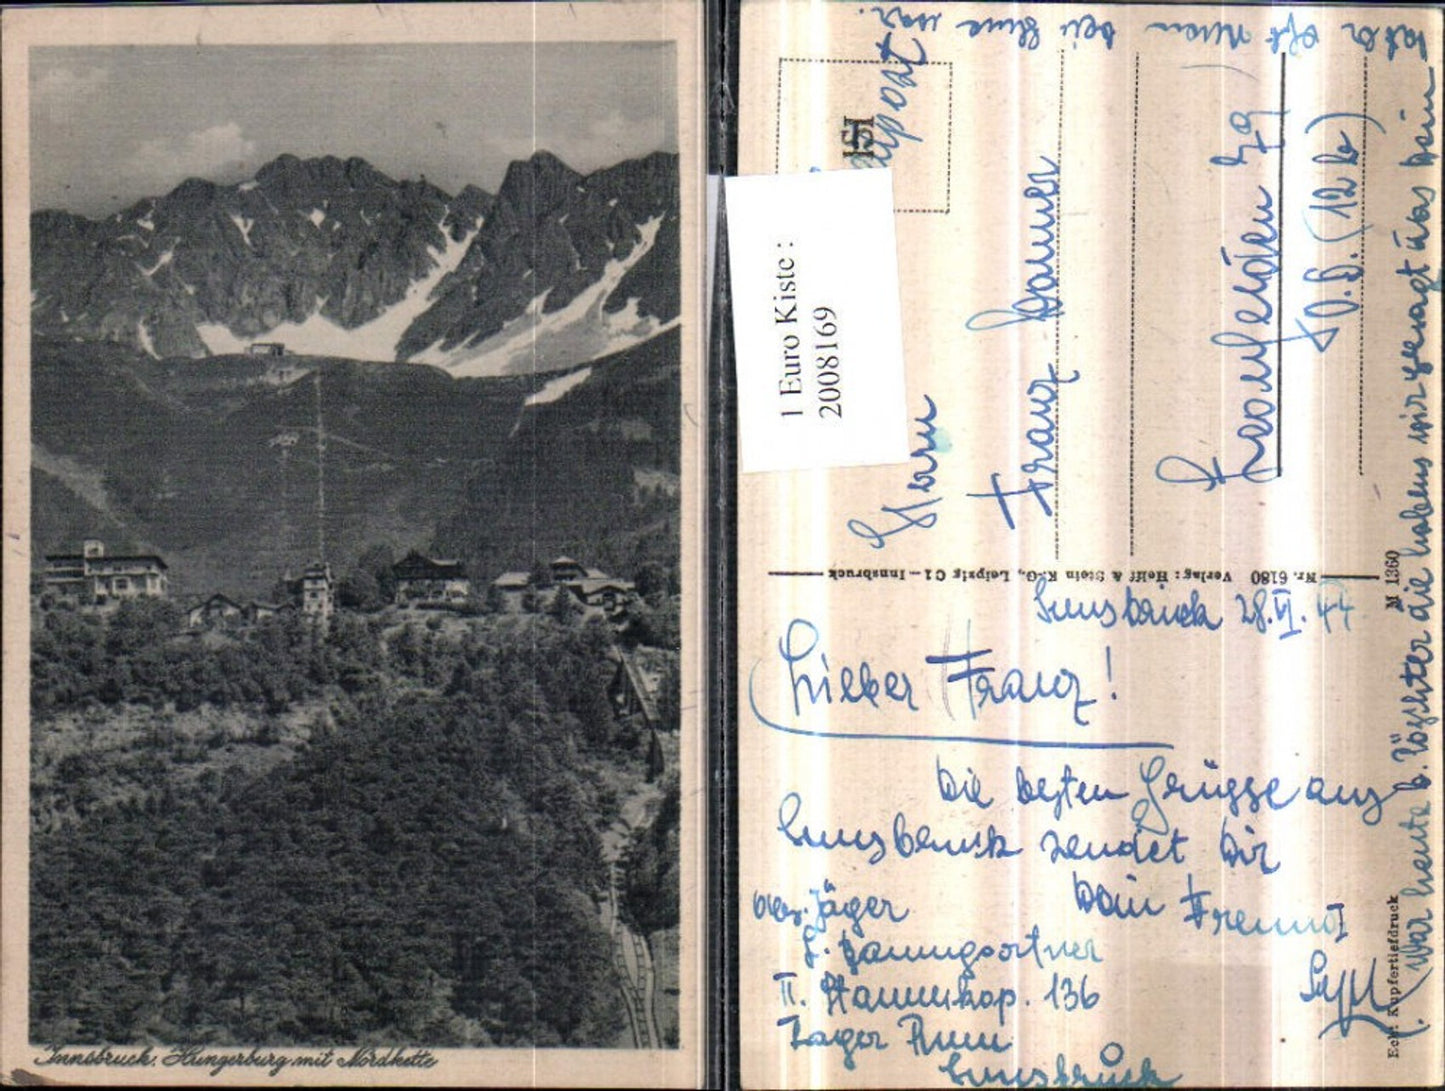 Innsbruck. Hungerburg mit Nordkette
1 Euro Kiste :
2008169
Feldpost
Herrn
Franz
N.D. (12b)
Nr. 6180 Verlag: Heiff & Stein K.-G., Leipzig C1 — Innsbruck
M 1360
Echt Kupfertiefdruck
Innsbruck 28.VI.44
Lieber Franz!
Die besten Grüsse aus
Innsbruck sendet Dir
Dein Freund
Jäger
J. Baumgartner
II. Stammkop. 136
Lager Rum
Innsbruck
(War heute b. die haben mir gesagt das Dein
Vater oft bei Ihne war.